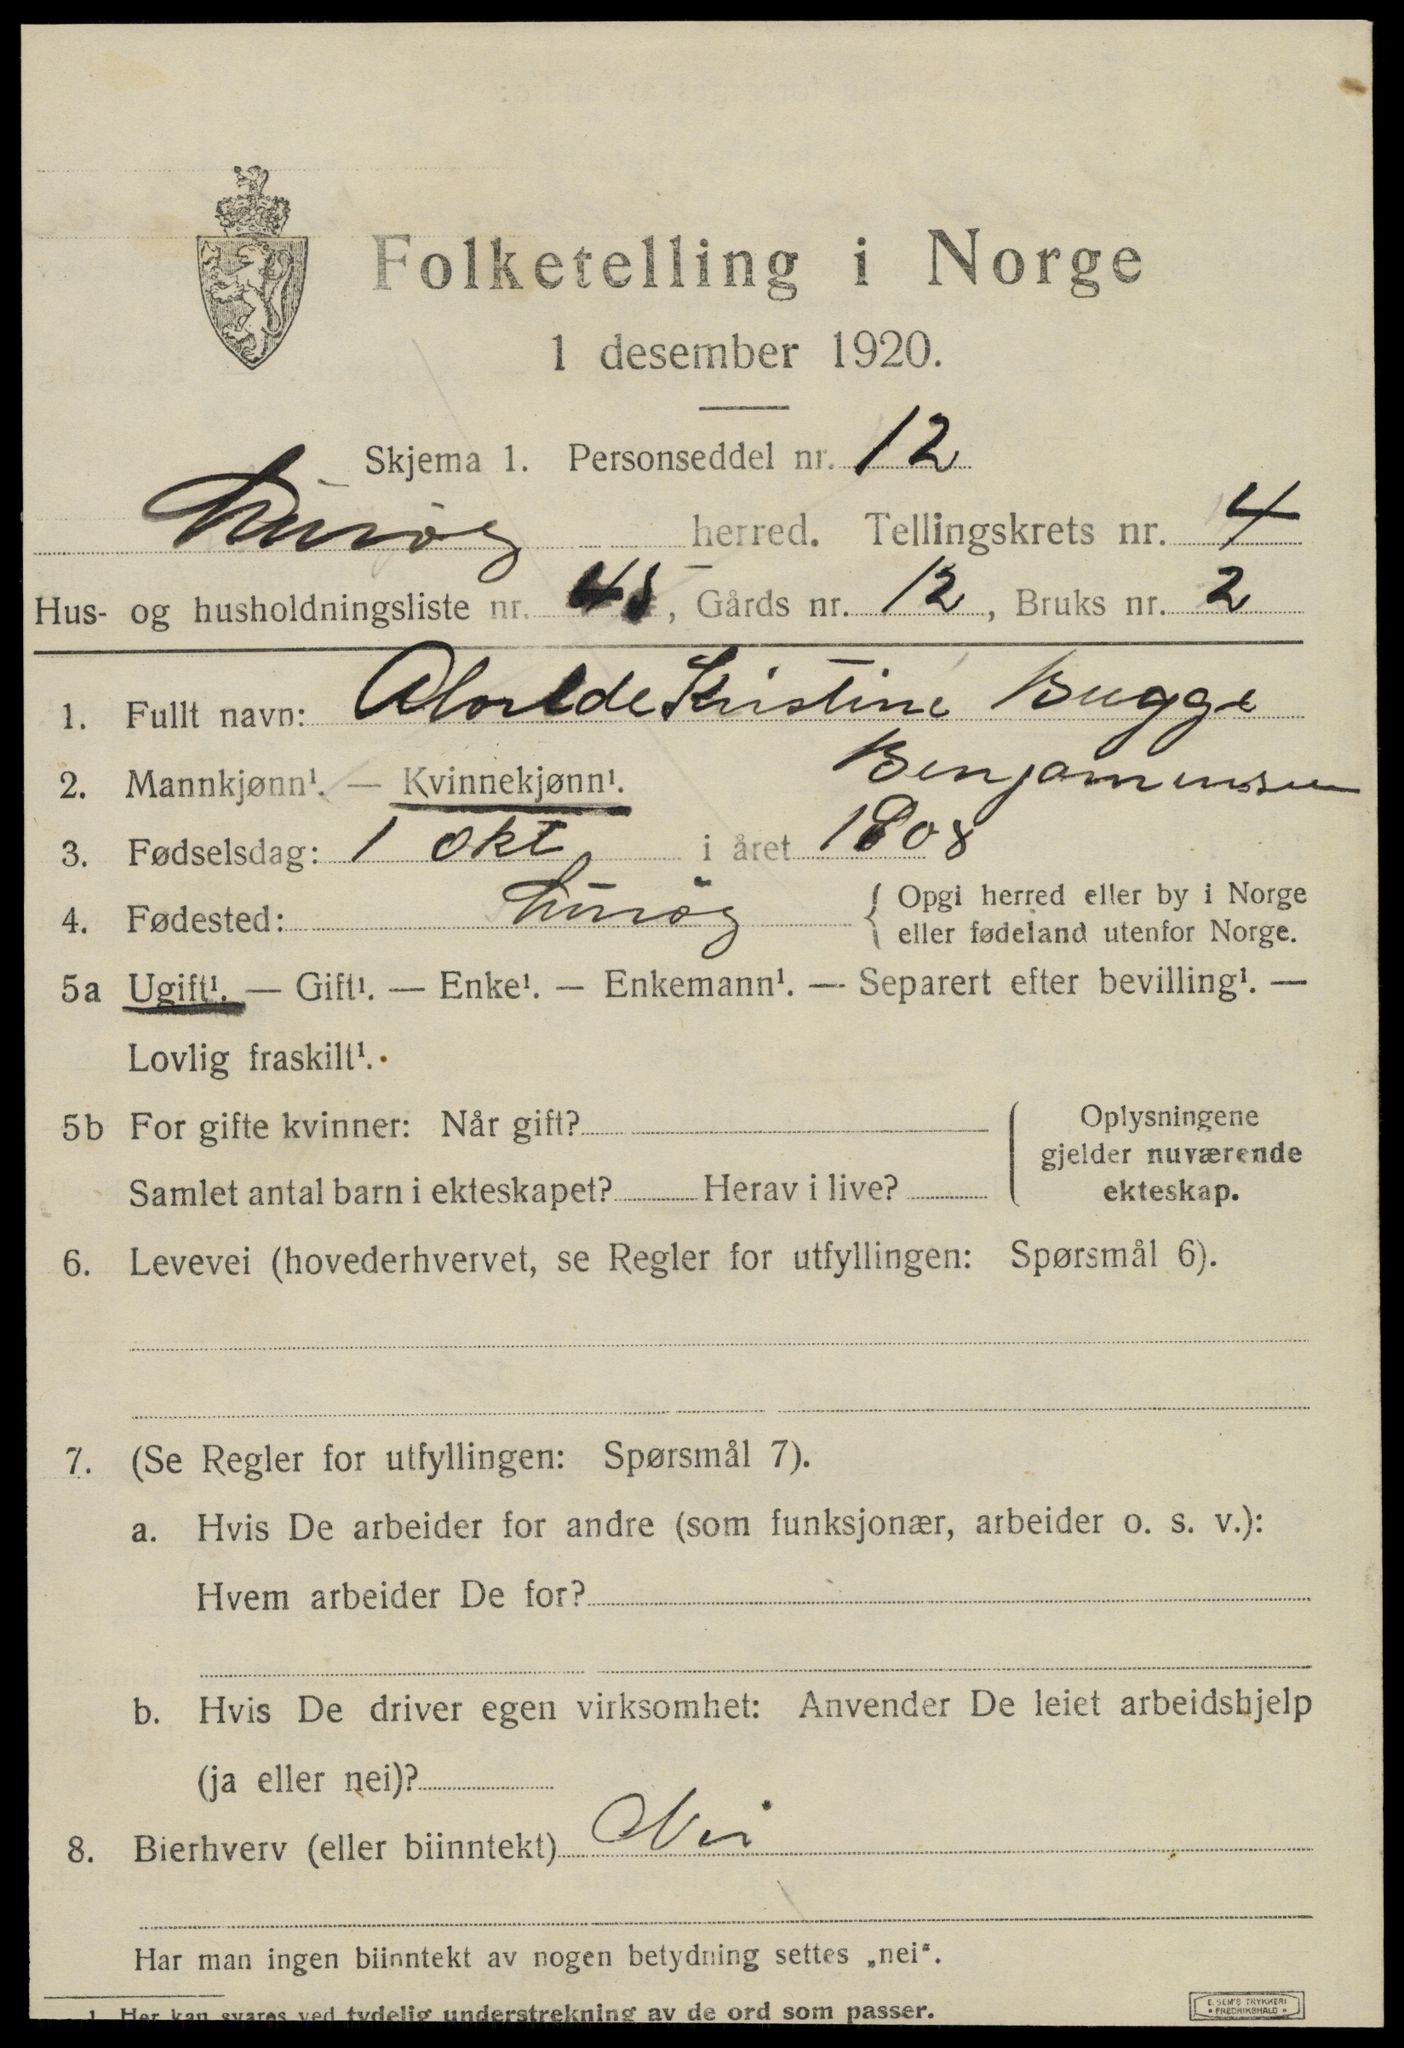 Folketelling i Norge
1 desember 1920.
Skjema 1. Personseddel nr. 12
Lurøy herred. Tellingskrets nr. 4
Hus- og husholdningsliste nr. 48, Gårds nr. 12, Bruks nr. 2
1. Fullt navn: Kristine Bugge
Benjaminsen
2. Mannkjønn¹. — Kvinnekjønn¹.
3. Fødselsdag: 1 Okt i året 1908
4. Fødested: Lurøy { Opgi herred eller by i Norge
eller fødeland utenfor Norge.
5a Ugift¹. — Gift¹. — Enke¹. — Enkemann¹. — Separert efter bevilling¹. —
Lovlig fraskilt¹.
5b For gifte kvinner: Når gift? Oplysningene
gjelder nuværende
Samlet antal barn i ekteskapet? Herav i live? ekteskap.
6. Levevei (hovederhvervet, se Regler for utfyllingen: Spørsmål 6).
7. (Se Regler for utfyllingen: Spørsmål 7).
a. Hvis De arbeider for andre (som funksjonær, arbeider o. s. v.):
Hvem arbeider De for?
b. Hvis De driver egen virksomhet: Anvender De leiet arbeidshjelp
(ja eller nei)?
8. Bierhverv (eller biinntekt) Nei
Har man ingen biinntekt av nogen betydning settes „nei“.
1 Her kan svares ved tydelig understrekning av de ord som passer.
E. SEM'S TRYKKERI
FREDRIKSHALD